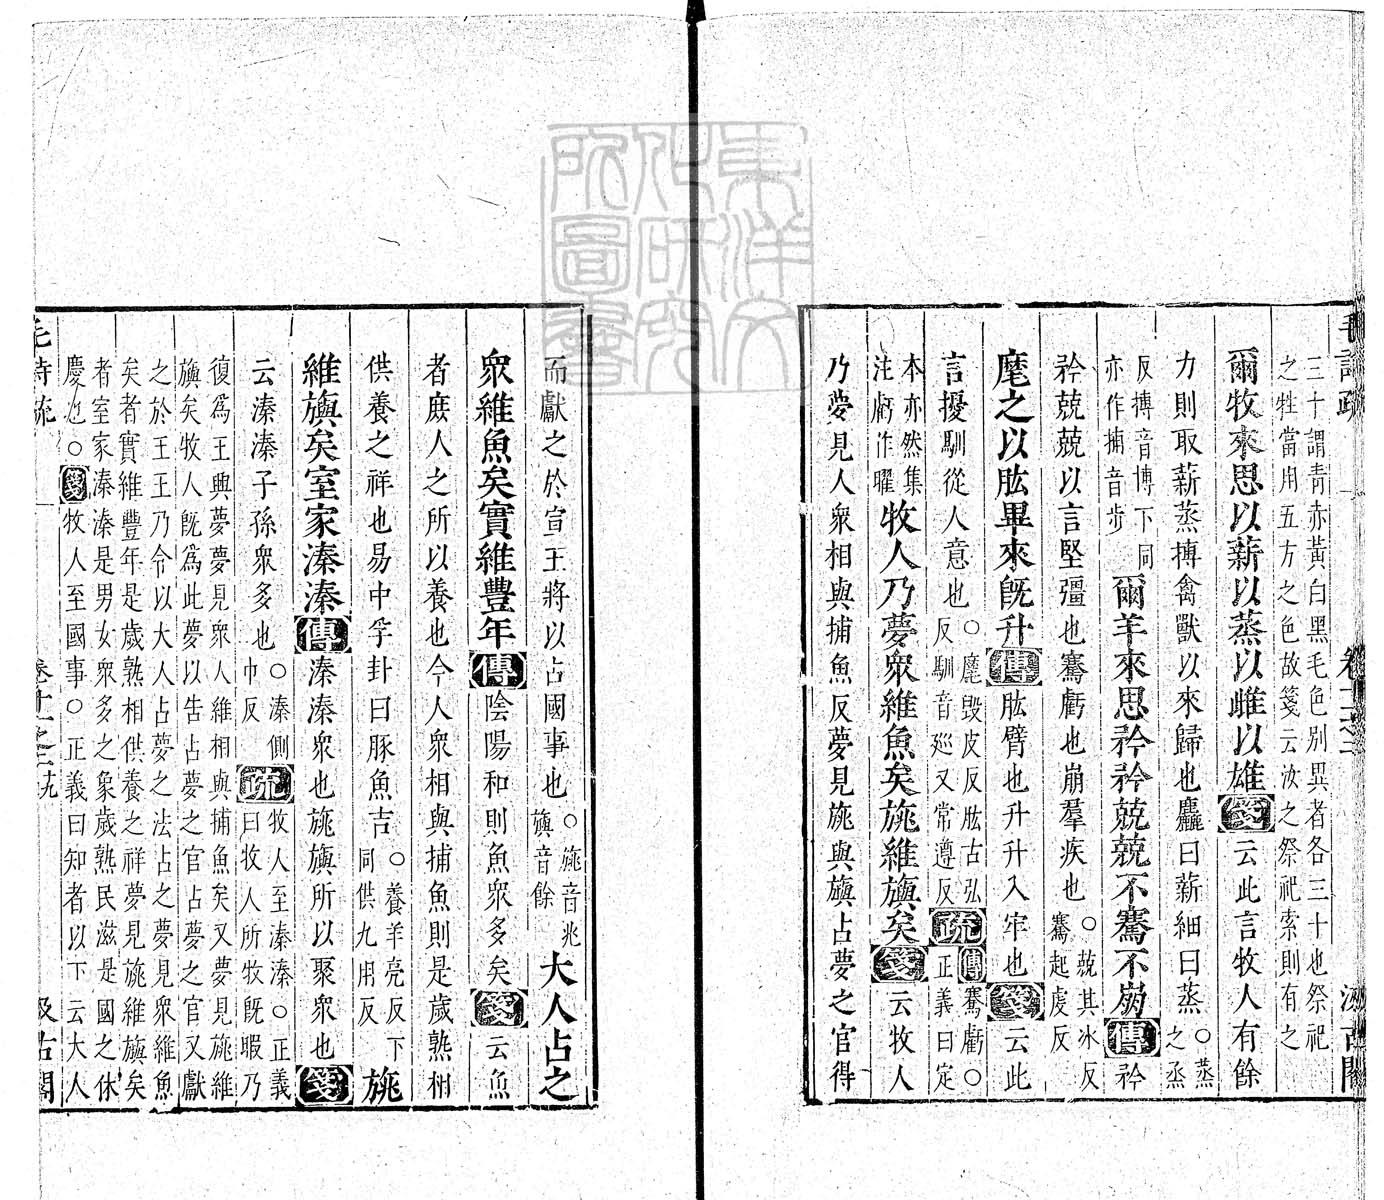 毛詩疏 卷十一之二 汲古閣
三十謂青赤黃白黑毛色別異者各三十也祭祀
之牲當用五方之色故箋云汝之祭祀索則有之
爾牧來思以薪以蒸以雌以雄箋云此言牧人有餘
力則取薪蒸搏禽獸以來歸也麤曰薪細曰蒸○蒸之丞
反搏音博下同亦作捕音步爾羊來思矜矜兢兢不騫不崩傳矜
矜兢兢以言堅彊也騫虧也崩羣疾也○兢其冰反騫起虔反
麾之以肱畢來既升傳肱臂也升升入牢也箋云此
言擾馴從人意也○麾毀皮反肱古弘反馴音廵又常遵反疏傳騫虧○正義曰定
本亦然集注虧作曜牧人乃夢衆維魚矣旐維旟矣箋云牧人
乃夢見人衆相與捕魚反夢見旐與旟占夢之官得
而獻之於宣王將以占國事也○旐音兆旟音餘大人占之
衆維魚矣實維豐年傳陰陽和則魚衆多矣箋云魚
者庶人之所以養也今人衆相與捕魚則是歲熟相
供養之祥也易中孚卦曰豚魚吉○養羊亮反下同供九用反旐
維旟矣室家溱溱傳溱溱衆也旐旟所以聚衆也箋
云溱溱子孫衆多也○溱側巾反疏牧人至溱溱○正義曰牧人所牧既暇乃
復爲王興夢夢見衆人維相與捕魚矣又夢見旐維
旟矣牧人既爲此夢以告占夢之官占夢之官又獻
之於王王乃令以大人占夢之法占之夢見衆維魚
矣者實維豐年是歲熟相供養之祥夢見旐維旟矣
者室家溱溱是男女衆多之象歲熟民滋是國之休
慶也○箋牧人至國事○正義曰知者以下云大人
毛詩疏 卷十一之二 十九 汲古閣